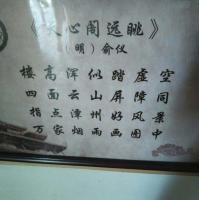 《天心阁远眺》
（明）俞仪
楼高浑似踏虚空
四面云山屏障同
指点潭州好风景
万家烟雨画图中